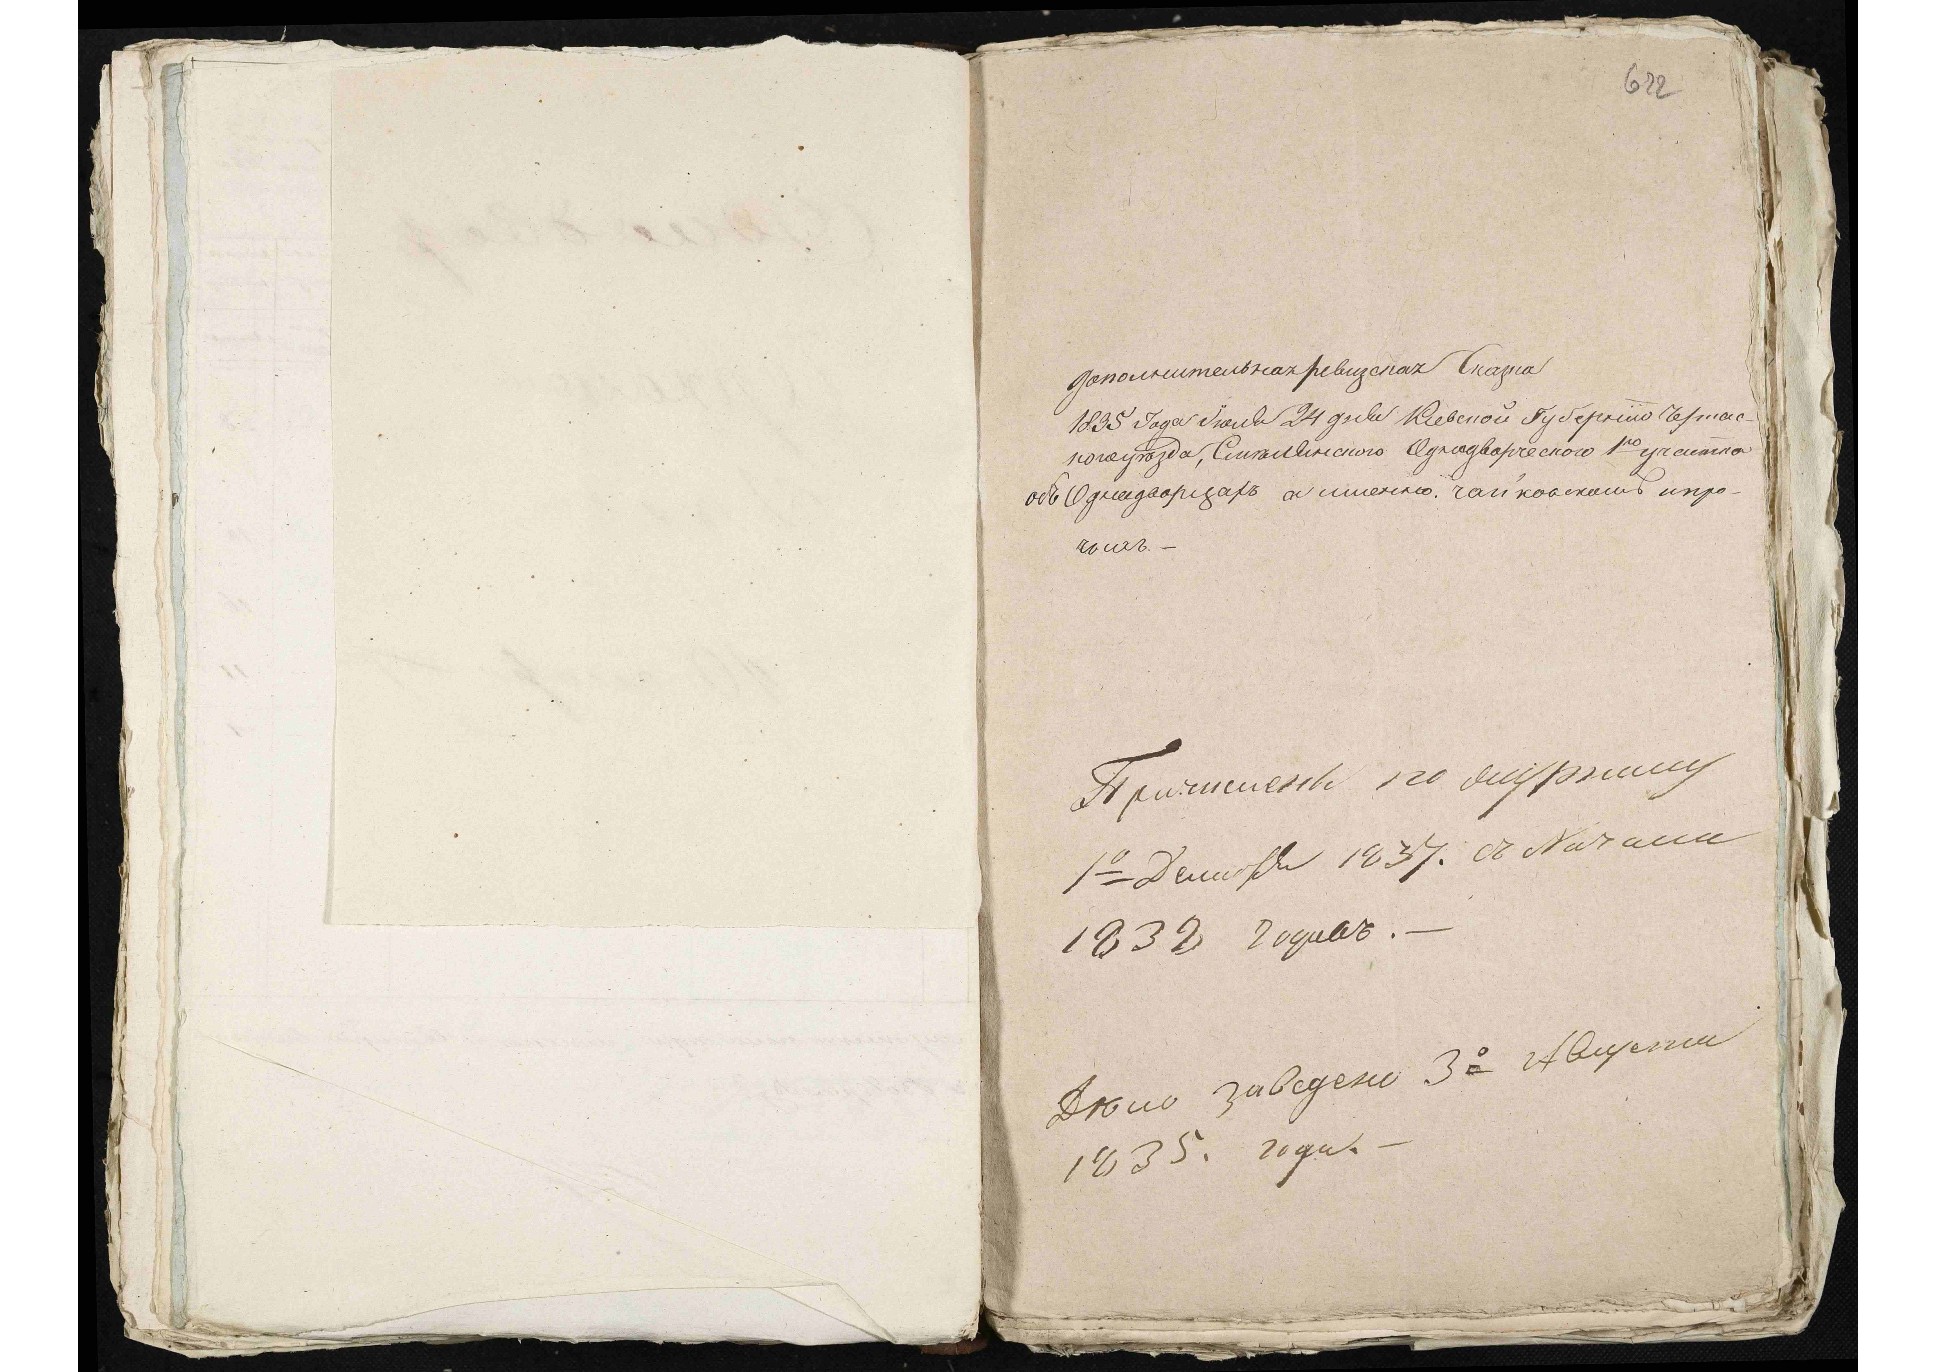 622
дополнительная ревизская Сказка
1835 Года Июля 24 дня Киевской Губернiи Черкас-
кого уѣзда, Смѣлянского Однодворческого 1го участка
объ Однодворцахъ а именно: Чайковскомъ и про-
чихъ. —
Причисленъ по окладу
1е 1837. съ Начала
1838 годовъ. —
Дѣло заведено 3о Августа
1835. года. —